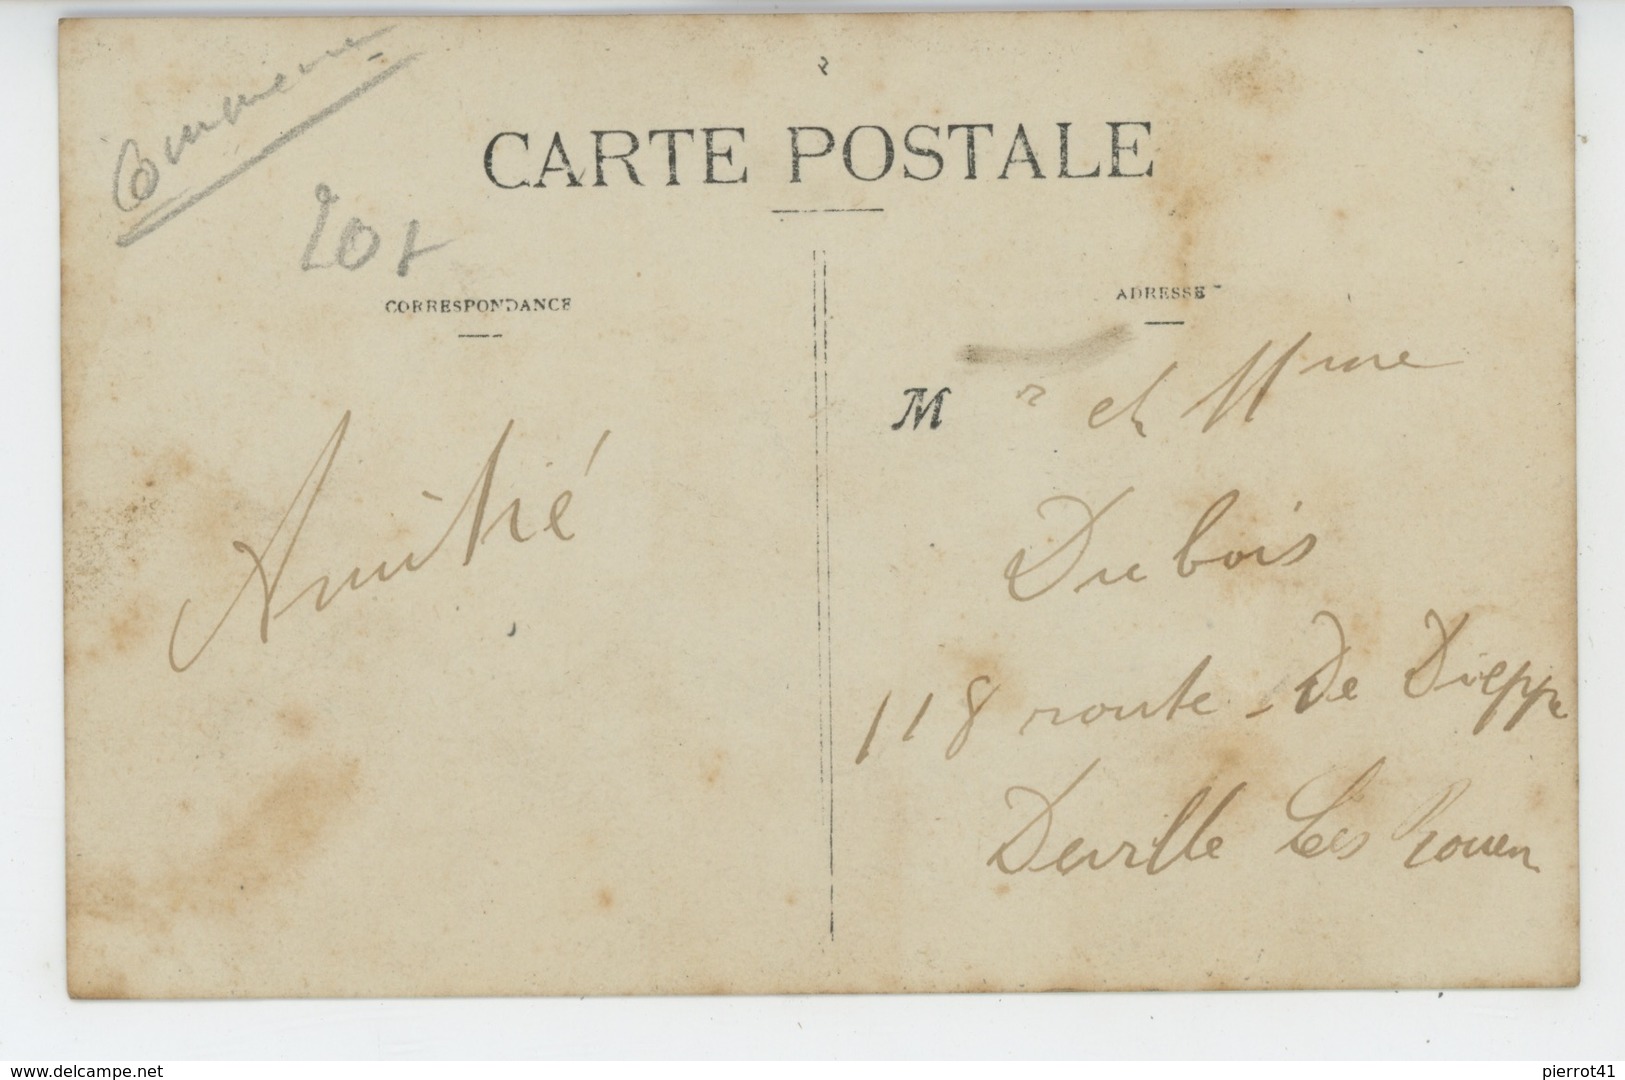 CARTE POSTALE
201
CORRESPONDANCE
ADRESSE
M r et Mme
Amitié
Dubois
118 route - De Dieppe
Deville Les Rouen
www.delcampe.net
pierrot41